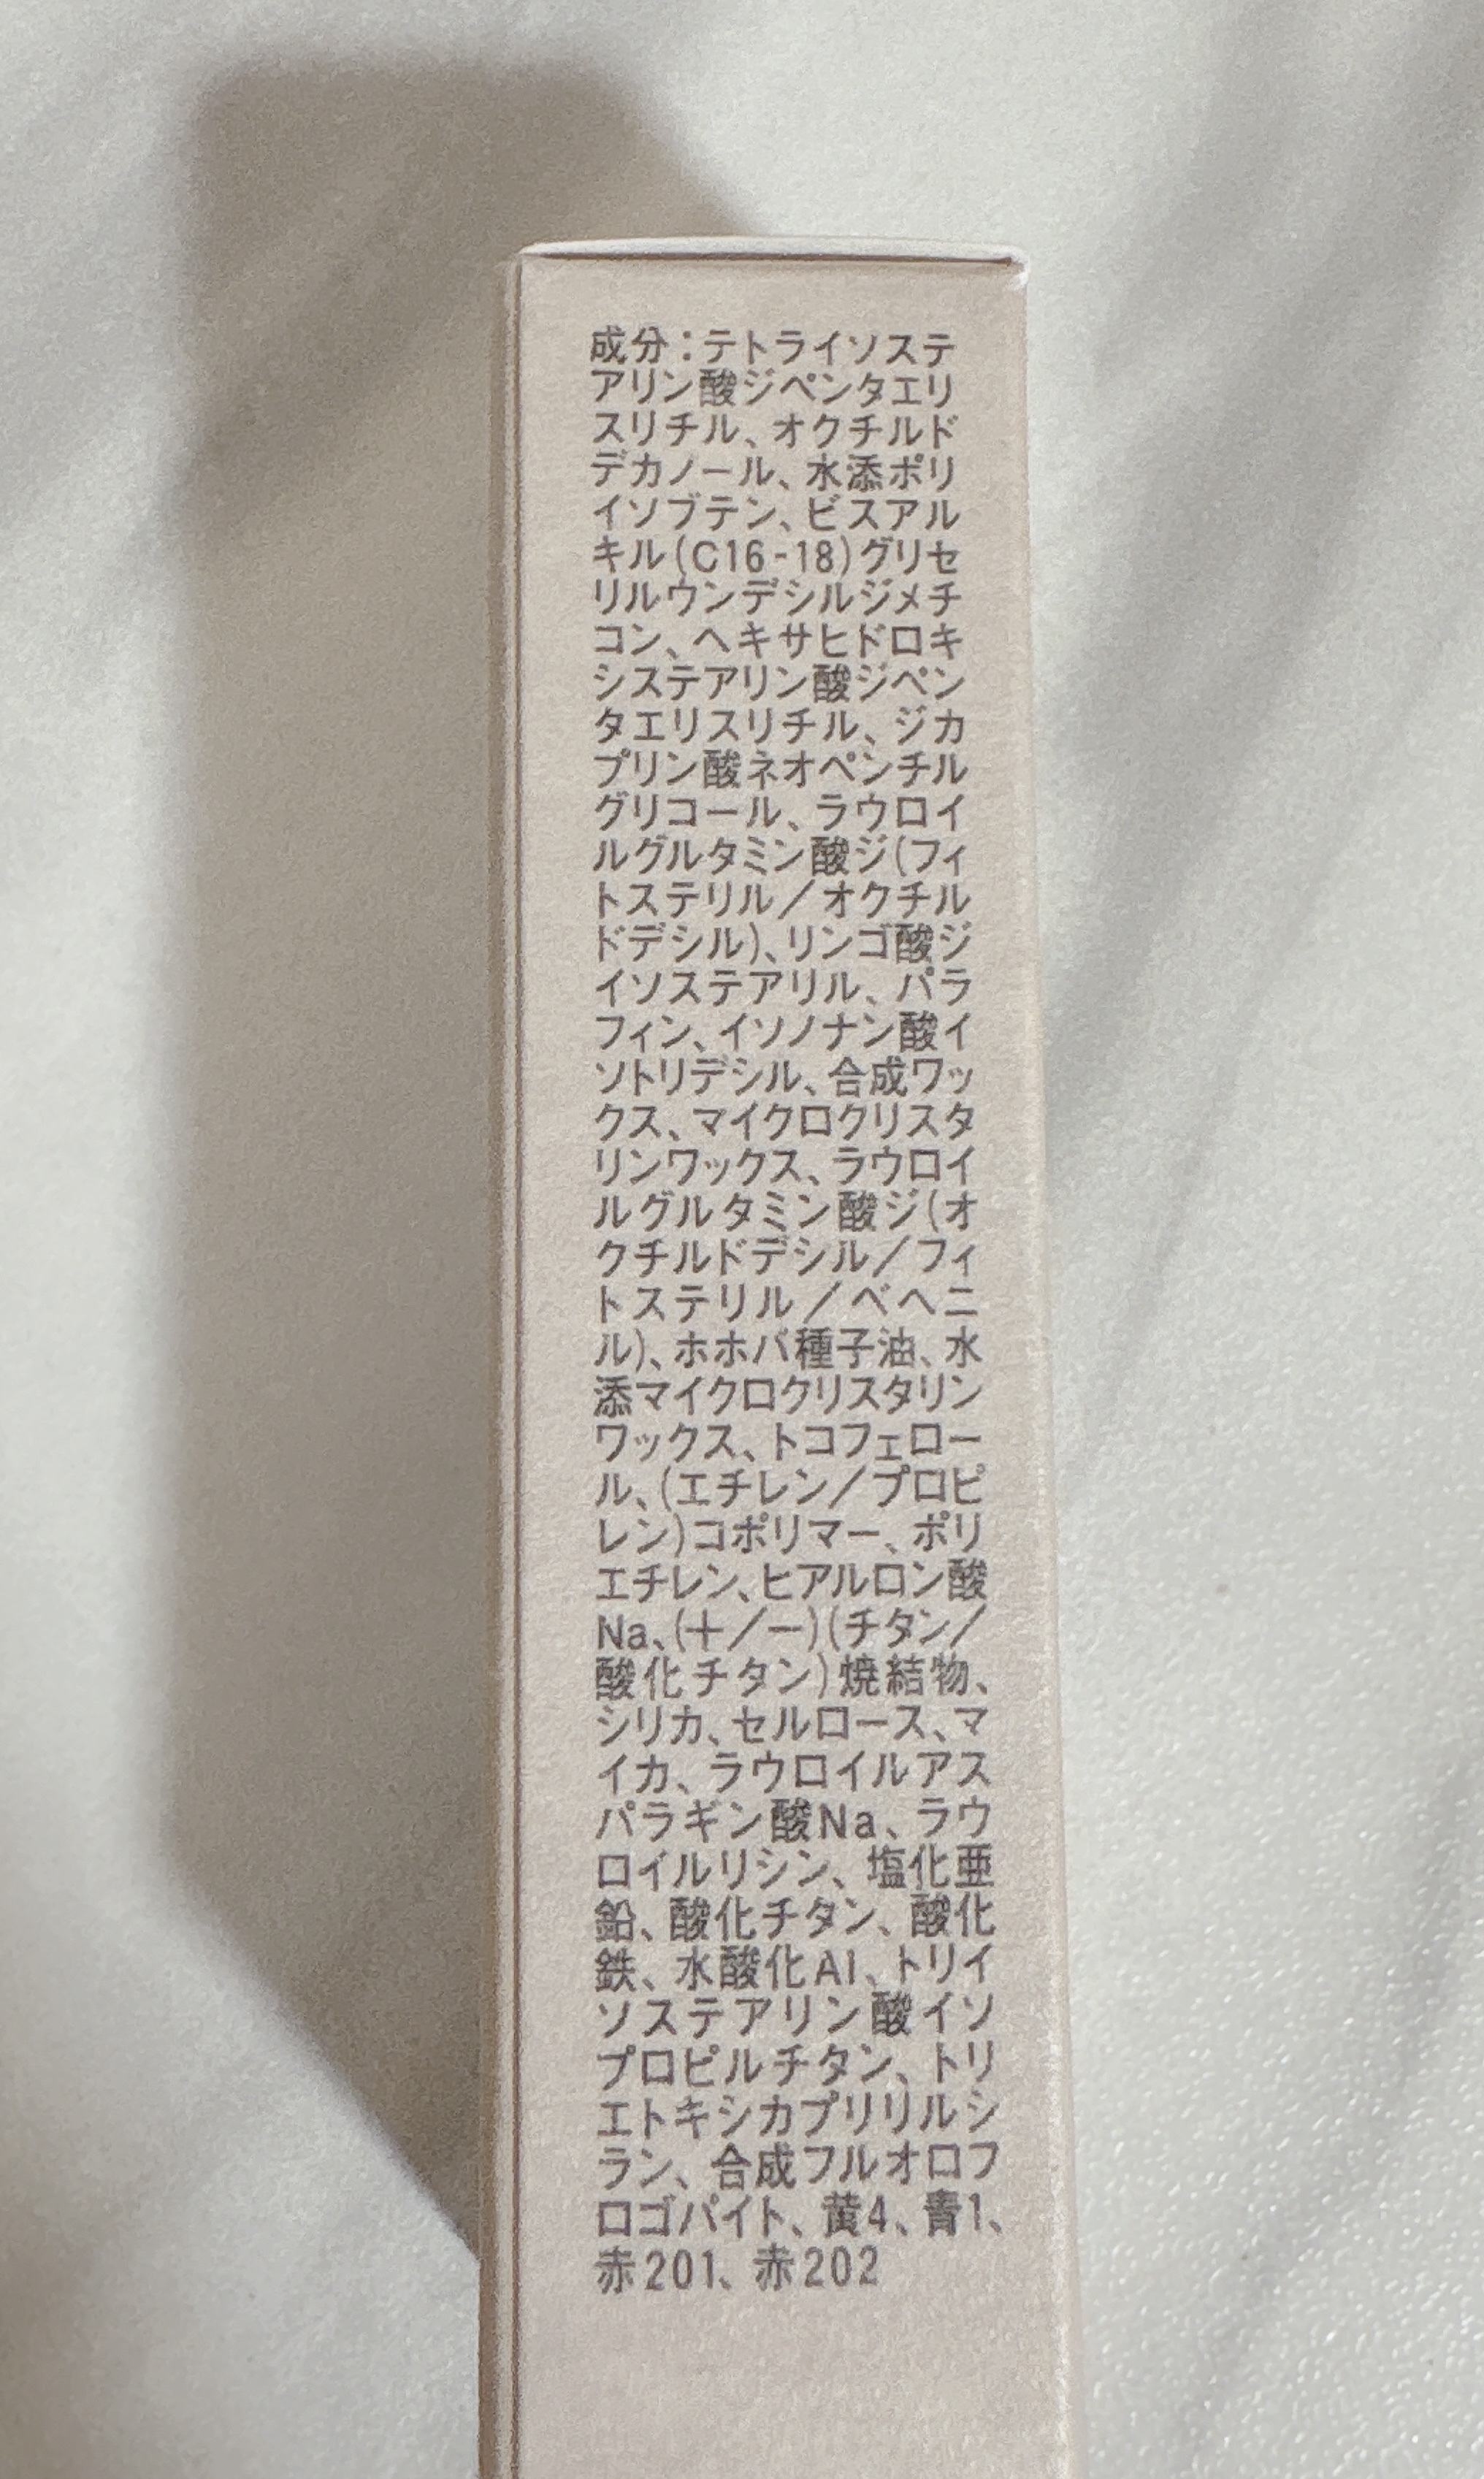 成分:テトライソステ
アリン酸ジペンタエリ
スリチル、オクチルド
デカノール、水添ポリ
イソブテン、ビスアル
キル(C16-18)グリセ
リルウンデシルジメチ
コン、ヘキサヒドロキ
システアリン酸ジペン
タエリスリチル、ジカ
プリン酸ネオペンチル
グリコール、ラウロイ
ルグルタミン酸ジ(フィ
トステリル/オクチル
ドデシル)、リンゴ酸ジ
イソステアリル、パラ
フィン、イソノナン酸イ
ソトリデシル、合成ワッ
クス、マイクロクリスタ
リンワックス、ラウロイ
ルグルタミン酸ジ(オ
クチルドデシル/フィ
トステリル/ベヘニ
ル)、ホホバ種子油、水
添マイクロクリスタリン
ワックス、トコフェロー
ル、(エチレン/プロピ
レン)コポリマー、ポリ
エチレン、ヒアルロン酸
Na、(+/-)(チタン/
酸化チタン)焼結物、
シリカ、セルロース、マ
イカ、ラウロイルアス
パラギン酸Na、ラウ
ロイルリシン、塩化亜
鉛、酸化チタン、酸化
鉄、水酸化Al、トリイ
ソステアリン酸イソ
プロピルチタン、トリ
エトキシカプリリルシ
ラン、合成フルオロフ
ロゴパイト、黄4、青1、
赤201、赤202